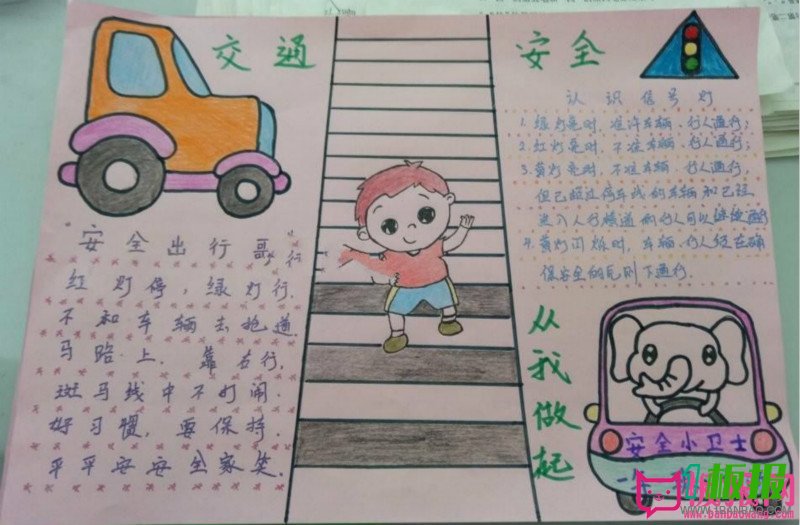 交通安全
安全出行歌
红灯停,绿灯行.
不和车辆去抢道
马路上.靠右行.
斑马线中不打闹
好习惯,要保持.
平平安安全家笑.
认识信号灯
1.绿灯亮时,准许车辆、行人通行;
2.红灯亮时,不准车辆、行人通行;
3.黄灯亮时,不准车辆、行人通行,
但已超过停车线的车辆和已经
进入人行横道的行人可以继续通行
4.黄灯闪烁时,车辆、行人须在确
保安全的原则下通行.
从我做起
安全小卫士
板报网
www.banbaowang.com